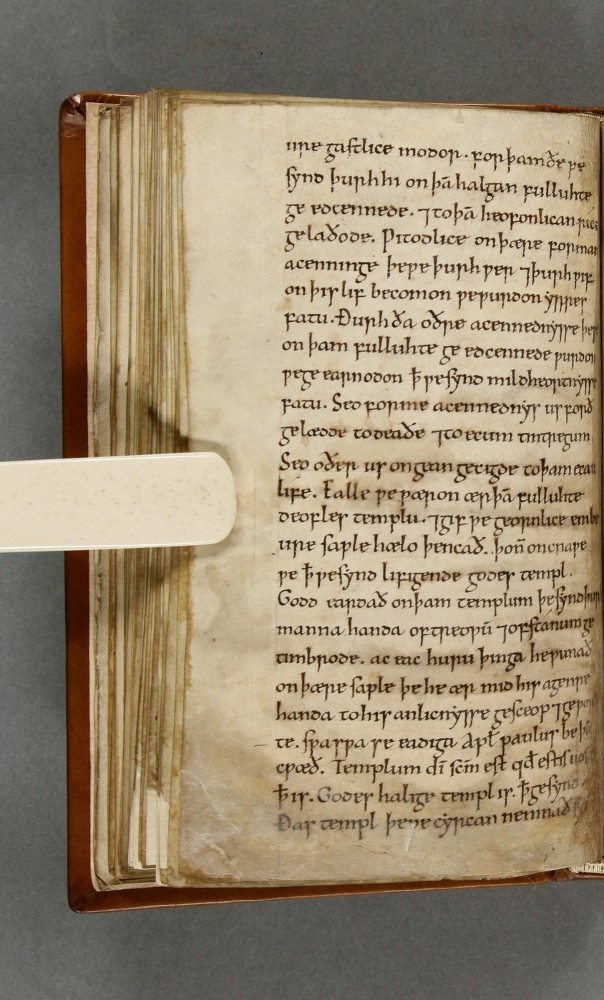 ure gastlice modor. forþamðe ƿe
synd þurh hi on þā halgan fulluhte
ge edcennede. ⁊ to þā heofonlican rice
gelaðode. Ƿitodlice on þære forman
acenninge þe ƿe þurh ƿer ⁊ þurh ƿif
on þis lif becomon ƿe ƿurdon yrres
fatu. Ðurh ða oðre acennednysse þe ƿe
on þam fulluhte ge edcennede ƿurdon
ƿe geearnodon ꝥ ƿe synd mildheortnysse
fatu. Seo forme acennednys us forð
gelædde to deaðe ⁊ to ecum tintregum.
Seo oðer us ongean gecigde to þam ecan
life. Ealle ƿe ƿæron ær þā fulluhte
deofles templu. ⁊ gif ƿe geornlice embe
ure saƿle hælo þencað. þoñ oncnaƿe
ƿe ꝥ ƿe synd lifigende godes templ.
Godd eardað on þam templum þe synd þurh
manna handa of treoƿū ⁊ of stanum ge
timbrode. ac eac huru þinga he ƿunað
on þære saƿle þe he ær mid his agenre
handa to his anlicnysse gesceop ⁊ geƿorh
te. sƿa sƿa se eadiga apłs paulus be þā
cƿæð. Templum dī scm̄ est qd̄ estis uos
ꝥ is. Godes halige templ is. ꝥ ge synd
Ðas templ þe ƿe cyrcan nemnað